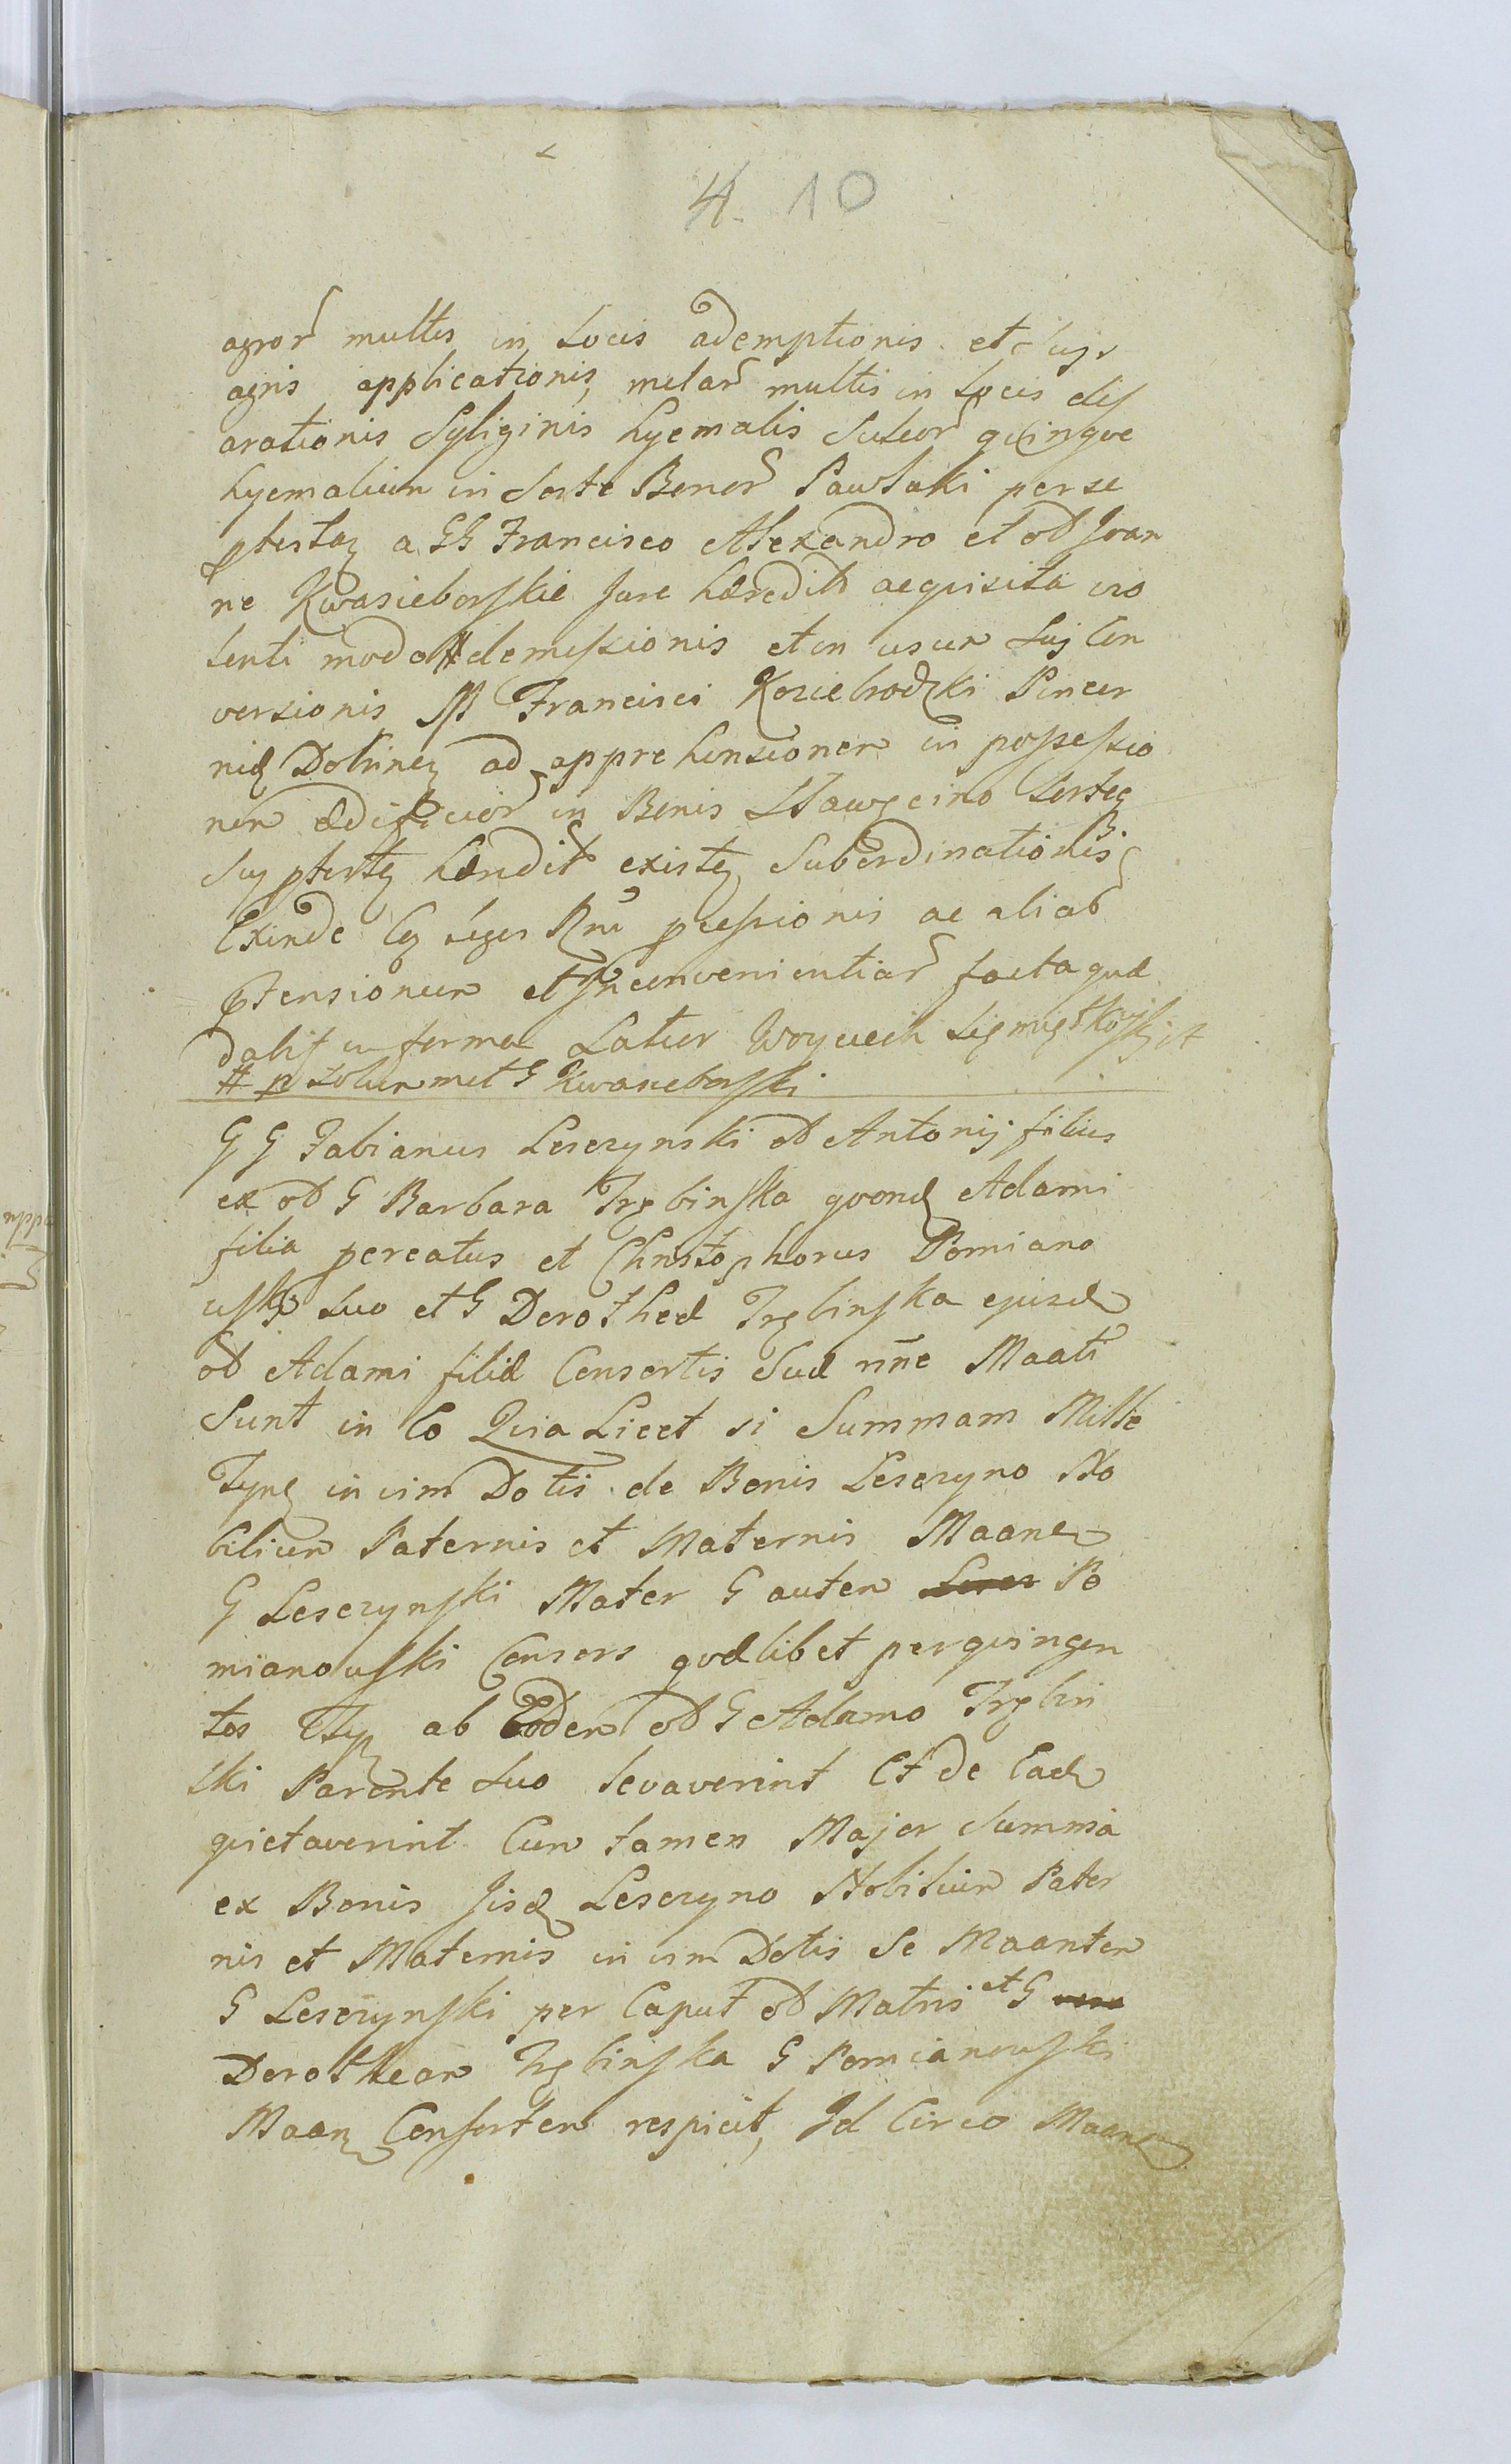 4. 10
agror multis in Locis ademptionis et suis
agris applicationis, metar multis in Locis dis
arationis Syliginis hyemalis Sulcor quinque
hyemalium in Sorte Bonor Pawlaki per se
ptestaz a GG Francisco Alexandro et od Joan
ne Kwasieborskie Jure hæredit acquisita vio
lenti modo # demissionis et in usum sui Con
versionis M Francisci Koziebrodzki Pincer
næ Dobrinez ad apprehensionem in possessio
nem ædificior in Bonis Sertez
Suz ptestez hændit existez Subordinationis
Exinde Cez pcessionis ac aliar
ptensionum et Inconvenientiar facta quæ
dabit in forma Latior Woyciech
# p solummet G Kwasieborski
G G Fabianus Leserynski od Antonij filius
ex od G Barbara Trębinska quond Adami
filia pcreatus et Christophorus Pomiano
wski suo et G Dorotheæ Trębinska ejusd
od Adami filiæ Consortis Suæ nne Maati
Sunt in Eo Quia Licet si Summam Mille
Fyne in vim Dotis de Bonis Leseryno No
bilium Paternis et Maternis Maane
G Leserynski Mater G autem Po
mianowski Consors quælibet per quingen
tos ab Eodem od G Adamo Trębin
ski Parente Suo levaverint Et de Ead
quietaverint Cum tamen Major Summa
ex Bonis Jisd Leseryno Nobilium Pater
nis et Maternis in vim Dotis Se Maantem
G Leserynski per Caput od Matris et G
Dorotheam Trębinska G Pomianowski
Maanz Consortem respicit, Id Circo Maane